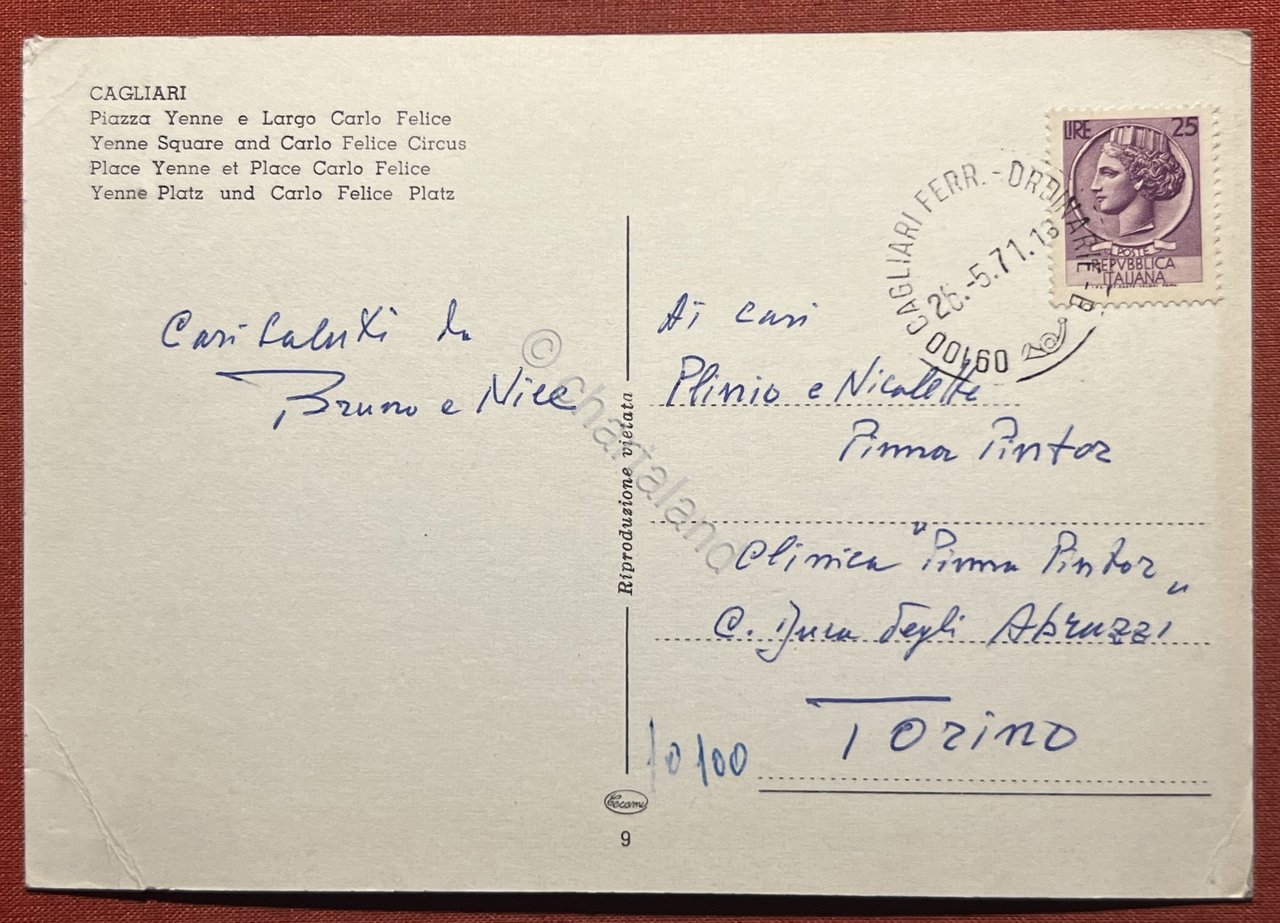 CAGLIARI
Piazza Yenne e Largo Carlo Felice
Yenne Square and Carlo Felice Circus
Place Yenne et Place Carlo Felice
Yenne Platz und Carlo Felice Platz
Cari saluti da
Bruno e Nice
Riproduzione vietata
Tecami
9
LIRE 25
POSTE
REPVBBLICA
ITALIANA
09100 CAGLIARI FERR. - ORDINARIE - B
26.-5.71.18
Ai cari
Plinio e Nicoletta
Pinna Pintor
Clinica "Pinna Pintor"
C. Duca degli Abruzzi
Torino
10100
© chartaland